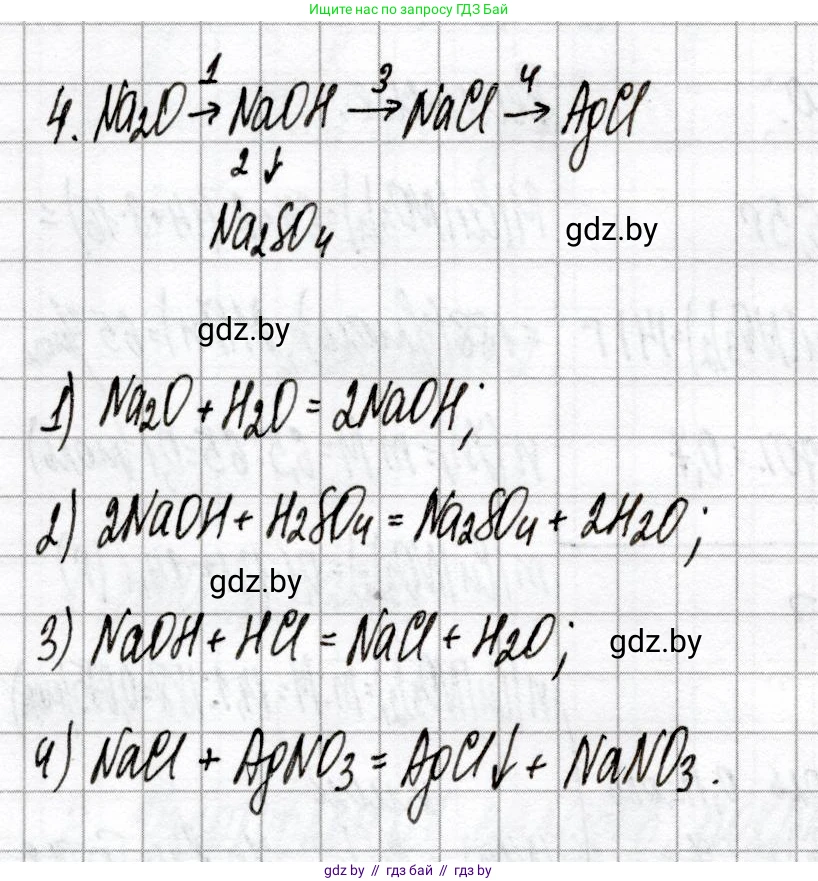 Ищите нас по запросу ГДЗ Бай
4. Na₂O →¹ NaOH →³ NaCl →⁴ AgCl
2 ↓
Na₂SO₄
gdz.by
gdz.by
1) Na₂O + H₂O = 2NaOH;
2) 2NaOH + H₂SO₄ = Na₂SO₄ + 2H₂O;
gdz.by
3) NaOH + HCl = NaCl + H₂O;
gdz.by
4) NaCl + AgNO₃ = AgCl↓ + NaNO₃.
gdz.by // гдз бай // gdz.by